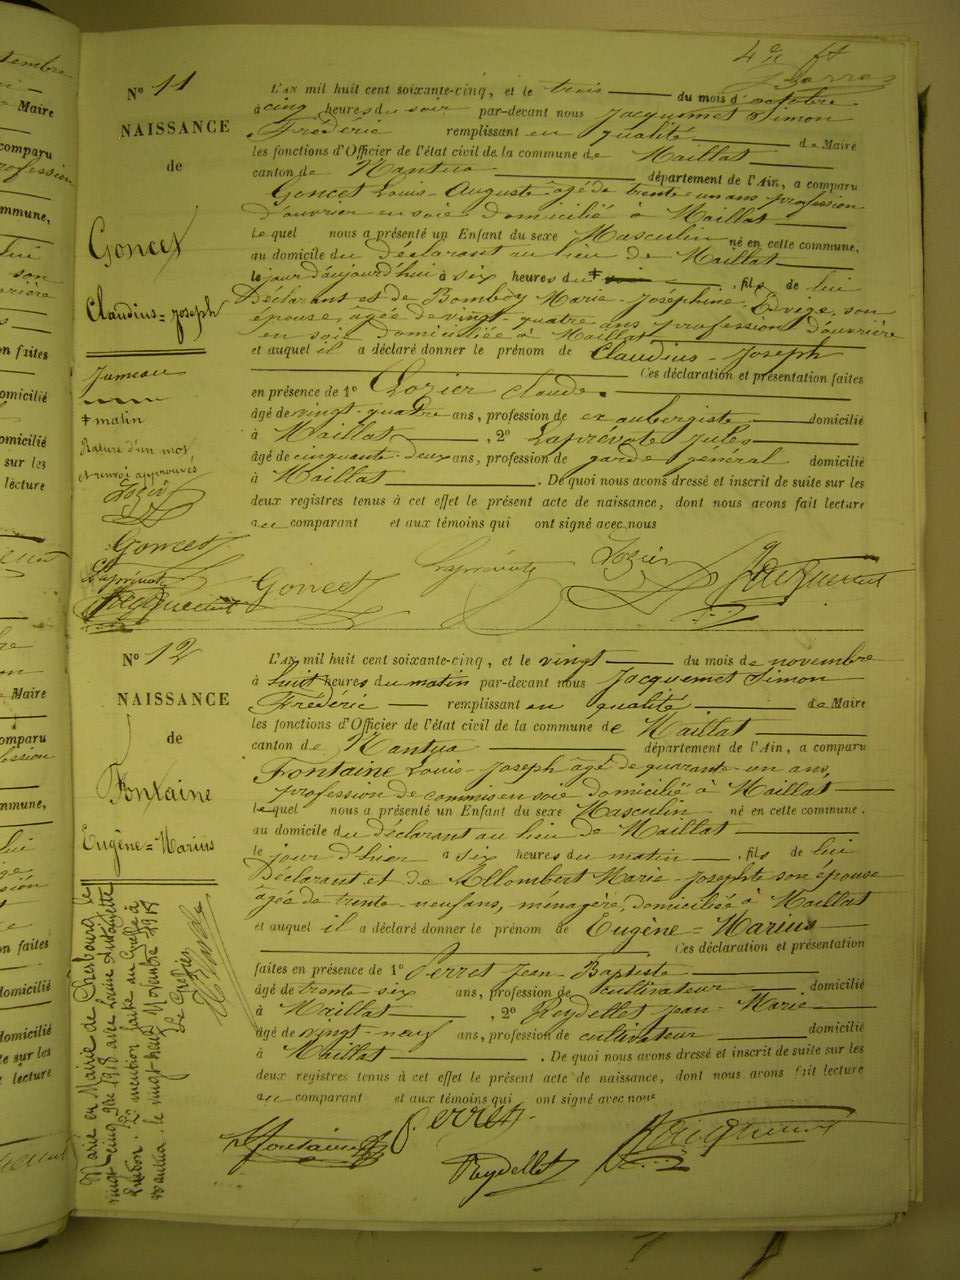 4e
N° 11
NAISSANCE
de
Goncet
Claudius=Joseph
Jumeau
‡ matin
Rature d'un mot
et renvoi approuvés
Lozier
Goncet
Laprévote
Jacquemet
L'AN mil huit cent soixante-cinq, et le trois du mois d'octobre
à cinq heures du soir par-devant nous Jacquemet Simon
Frédéric remplissant en qualité de Maire
les fonctions d'Officier de l'état civil de la commune de Maillat
canton de Nantua département de l'Ain, a comparu
Goncet Louis-Auguste âgé de trente un ans profession
d'ouvrier en soie domicilié à Maillat
Le quel nous a présenté un Enfant du sexe Masculin né en cette commune,
au domicile du déclarant au lieu de Maillat
le jour d'aujourd'hui à six heures du ‡ soir, fils de lui
Déclarant et de Bomboy Marie-Joséphine Edvige, son
épouse, agée de vingt-quatre ans profession d'ouvrière
en soie domiciliée à Maillat
et auquel il a déclaré donner le prénom de Claudius-Joseph
Ces déclaration et présentation faites
en présence de 1° Lozier Claude
âgé de vingt-quatre ans, profession de ex aubergiste domicilié
à Maillat, 2° Laprévote Jules
âgé de cinquante-deux ans, profession de garde général domicilié
à Maillat. De quoi nous avons dressé et inscrit de suite sur les
deux registres tenus à cet effet le présent acte de naissance, dont nous avons fait lecture
au comparant et aux témoins qui ont signé avec nous
Goncet Laprévote Lozier Jacquemet
N° 12
NAISSANCE
de
Fontaine
Eugène=Marius
Marié en Mairie de Cherbourg le
vingt cinq 9bre 1918 avec Louise Antoinette
mention faite au Greffe à
Nantua le vingt neuf Novembre 1918
Le Greffier
L'AN mil huit cent soixante-cinq, et le vingt du mois de novembre
à huit heures du matin par-devant nous Jacquemet Simon
Frédéric remplissant en qualité de Maire
les fonctions d'Officier de l'état civil de la commune de Maillat
canton de Nantua département de l'Ain, a comparu
Fontaine Louis-Joseph âgé de quarante-un ans,
profession de commis en soie domicilié à Maillat
Lequel nous a présenté un Enfant du sexe Masculin né en cette commune.
au domicile du déclarant au lieu de Maillat
le jour d'hier à six heures du matin, fils de lui
Déclarant et de Allombert Marie-Josephte son épouse
âgée de trente-neuf ans, ménagère, domiciliée à Maillat
et auquel il a déclaré donner le prénom de Eugène=Marius
Ces déclaration et présentation
faites en présence de 1° Perret Jean-Baptiste
âgé de trente six ans, profession de cultivateur domicilié
à Maillat, 2° Reydellet Jean-Marie
âgé de vingt-neuf ans, profession de cultivateur domicilié
à Maillat. De quoi nous avons dressé et inscrit de suite sur les
deux registres tenus à cet effet le présent acte de naissance, dont nous avons fait lecture
au comparant et aux témoins qui ont signé avec nous
Fontaine Perret Reydellet Jacquemet